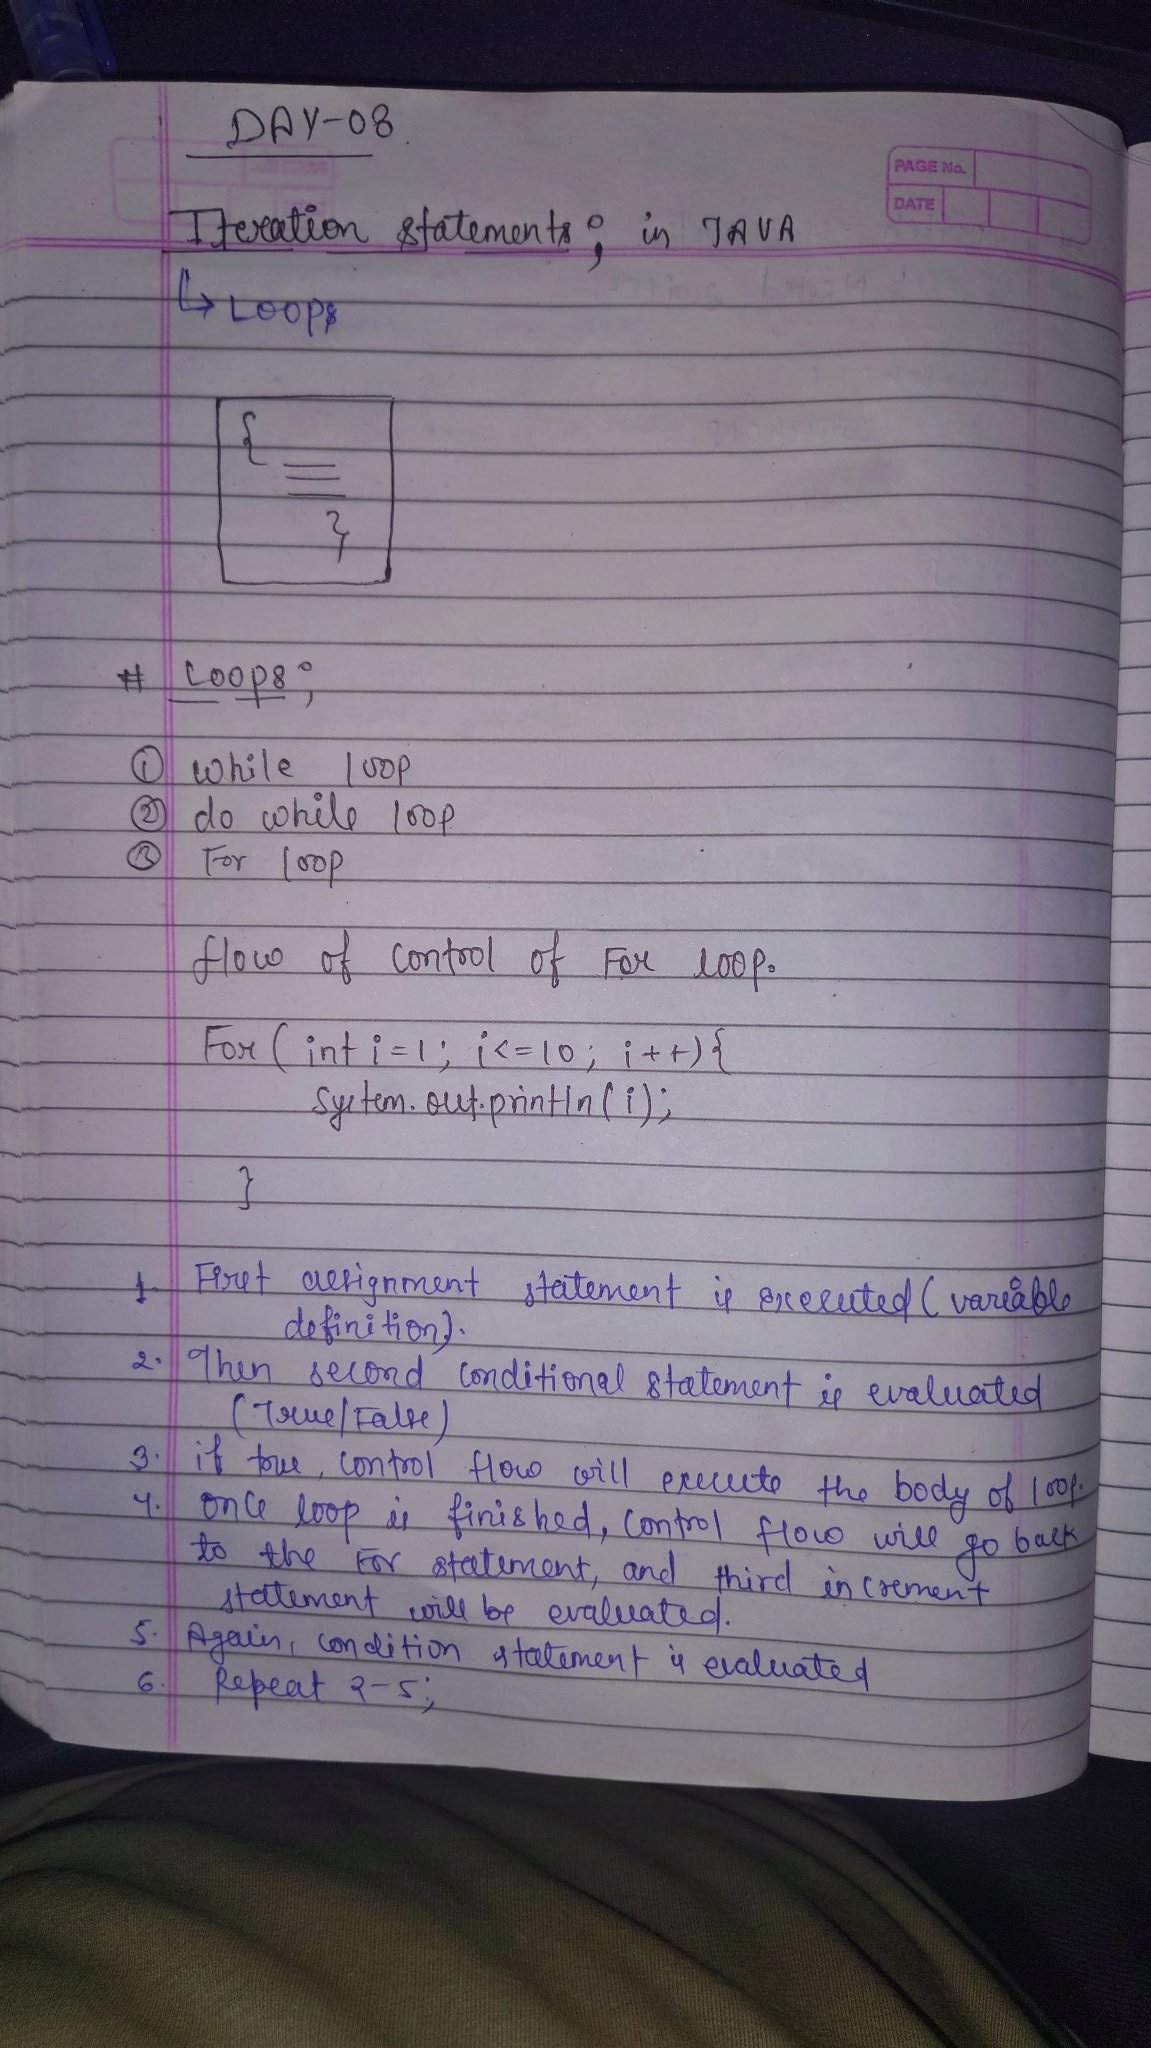 DAY-08.
PAGE No.
DATE
Iteration statements; in JAVA
↳ Loops
{
}
# Loops;
① while loop
② do while loop
③ For loop
flow of control of For loop.
For ( int i=1; i<=10; i++){
System.out.println(i);
}
1. First assignment statement is executed ( variable
definition).
2. Then second conditional statement is evaluated
(True/False)
3. if true, control flow will execute the body of loop.
4. once loop is finished, control flow will go back
to the For statement, and third increment
statement will be evaluated.
5. Again, condition statement is evaluated
6. Repeat 2-5;